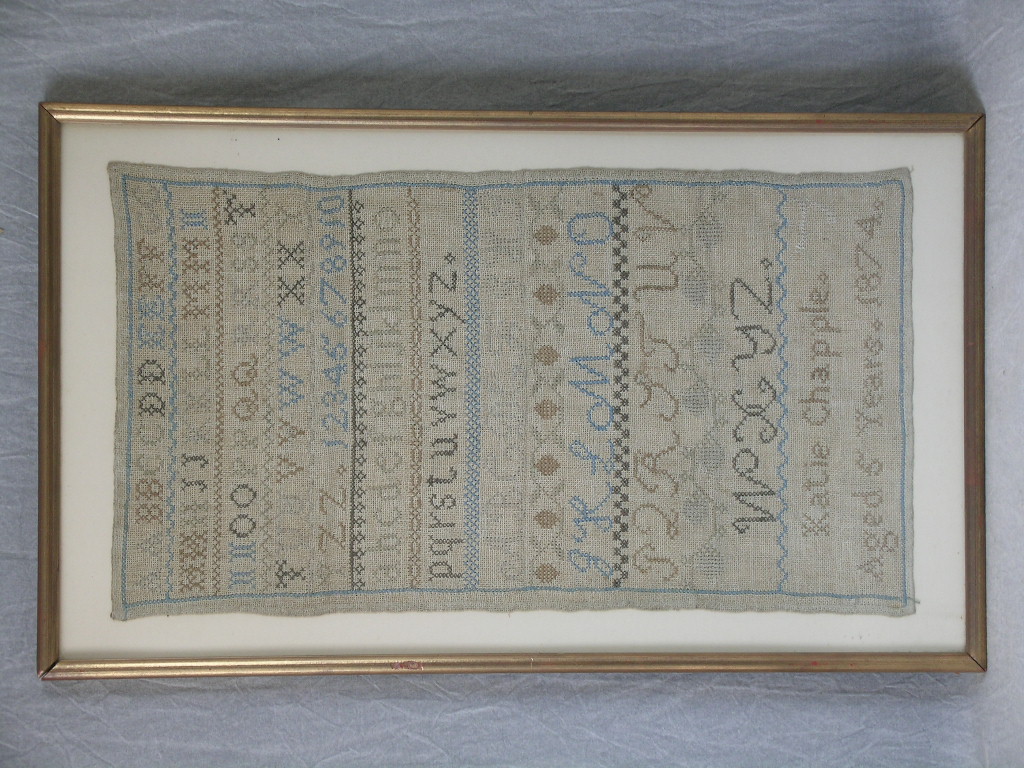 A A B B C C D D E E F F
H H I I J J K K L L M M N
N N O O P P Q Q R R S S T
T U U V V W W X X Y
Y Z Z . 12345678910
abcdefghijklmno
pqrstuvwxyz.
J K L M N O
P Q R S T U V
W X Y Z.
Katie Chapple.
Aged 6 Years. 1874.